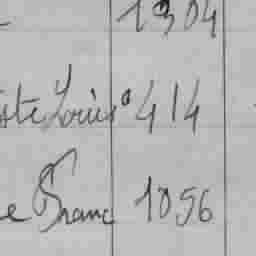 1904
ste Louis 414
e Franc 1056